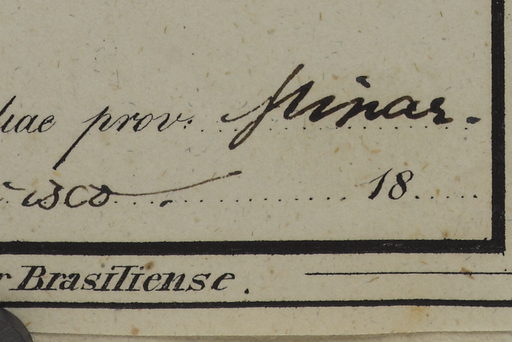 iae prov. Minas.
isco. 18
r Brasiliense.